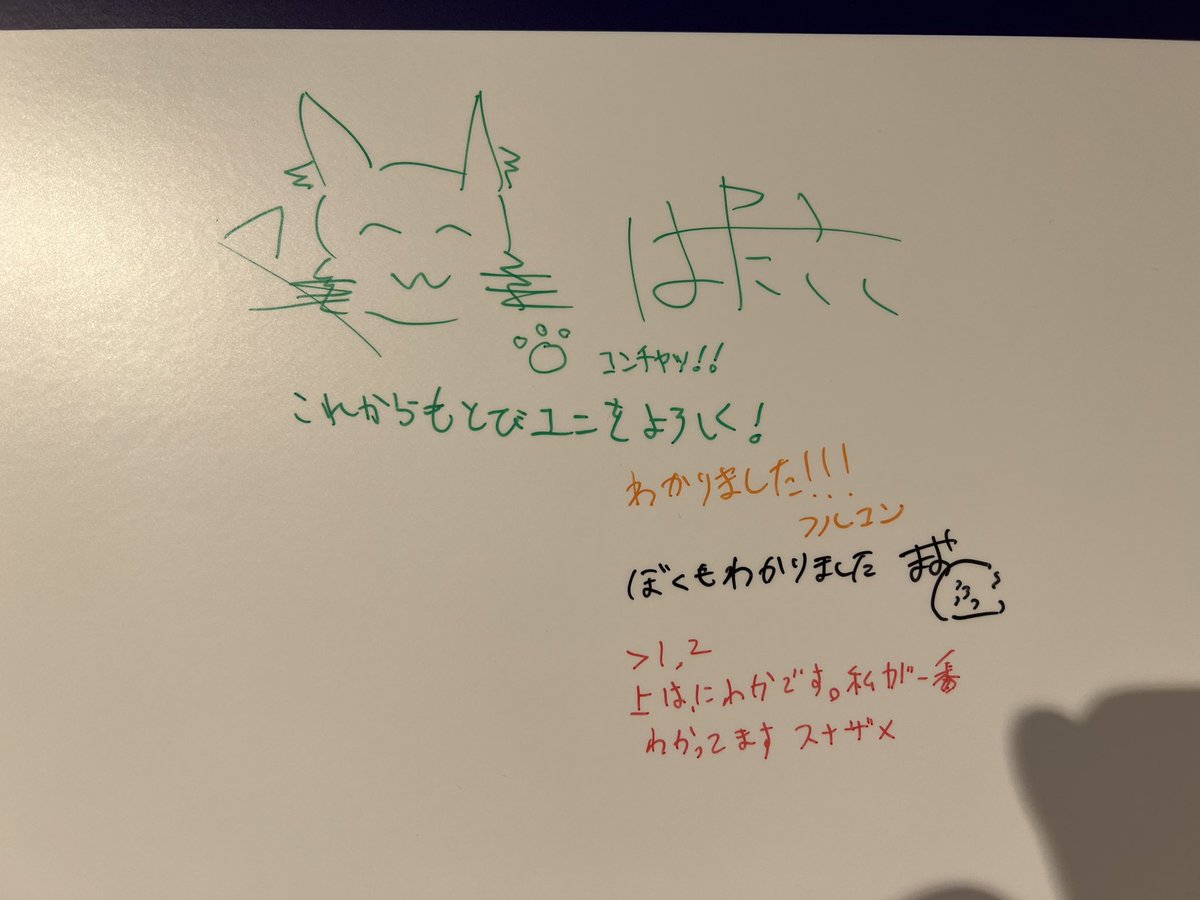 コンチャッ!!
これからもとびユニをよろしく!
わかりました!!!
フルコン
ぼくもわかりました
>1,2
上は、にわかです。私が一番
わかってます スナザメ